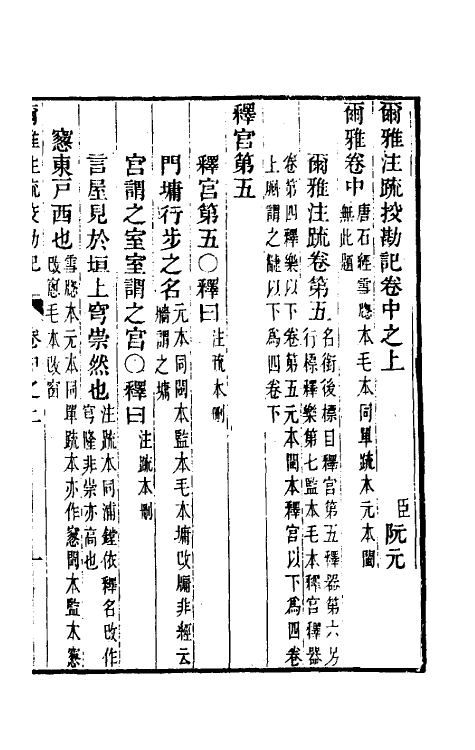 爾雅注疏挍勘記卷中之上
臣阮元
爾雅卷中
唐石經雪牕本毛本同單疏本元本閩
無此題
爾雅注疏卷第五
名銜後標目釋宮第五釋器第六另
行標釋樂第七監本毛本釋宮釋器
卷第四釋樂以下卷第五元本閩本釋宮以下爲四卷
上
釋宮第五
釋宮第五〇釋曰
注疏本刪
門墉行步之名
元本同閩本監本毛本墉改牗非經云
牆謂之墉
宮謂之室室謂之宮〇釋曰
注疏本刪
言屋見於垣上穹崇然也
注疏本同浦鏜依釋名改作
穹隆非崇亦高也
窻東戸西也
雪牕本元本同單疏本亦作窻閩本監本窻
改牕毛本改窗
爾雅注疏挍勘記
卷中之上
一